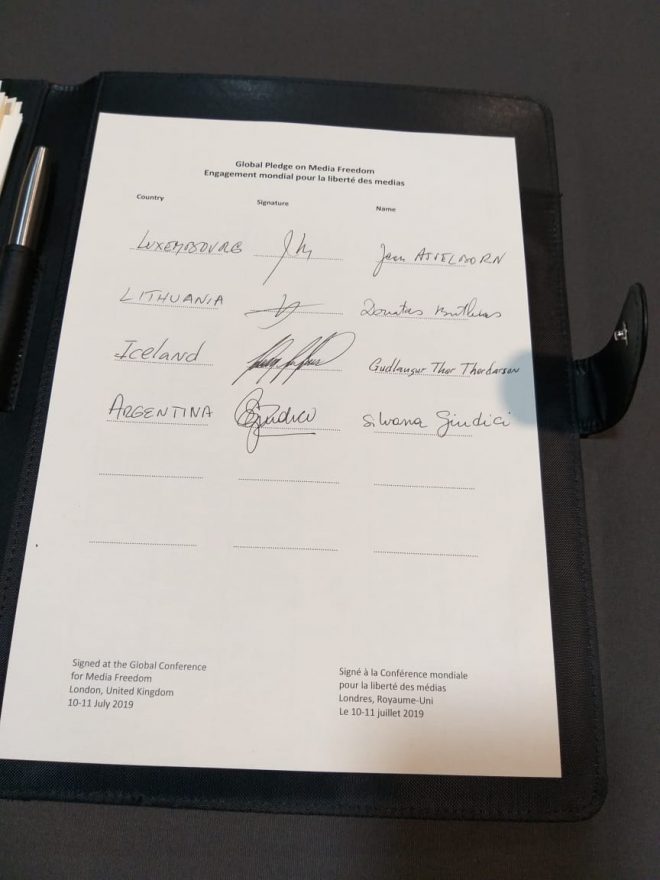 Global Pledge on Media Freedom
Engagement mondial pour la liberté des medias
Country Signature Name
LUXEMBOURG Jean ASSELBORN
LITHUANIA Donatas
Iceland Gudlaugur Thor Thordarson
ARGENTINA SGiudici Silvana Giudici
Signed at the Global Conference
for Media Freedom
London, United Kingdom
10-11 July 2019
Signé à la Conférence mondiale
pour la liberté des médias
Londres, Royaume-Uni
Le 10-11 juillet 2019